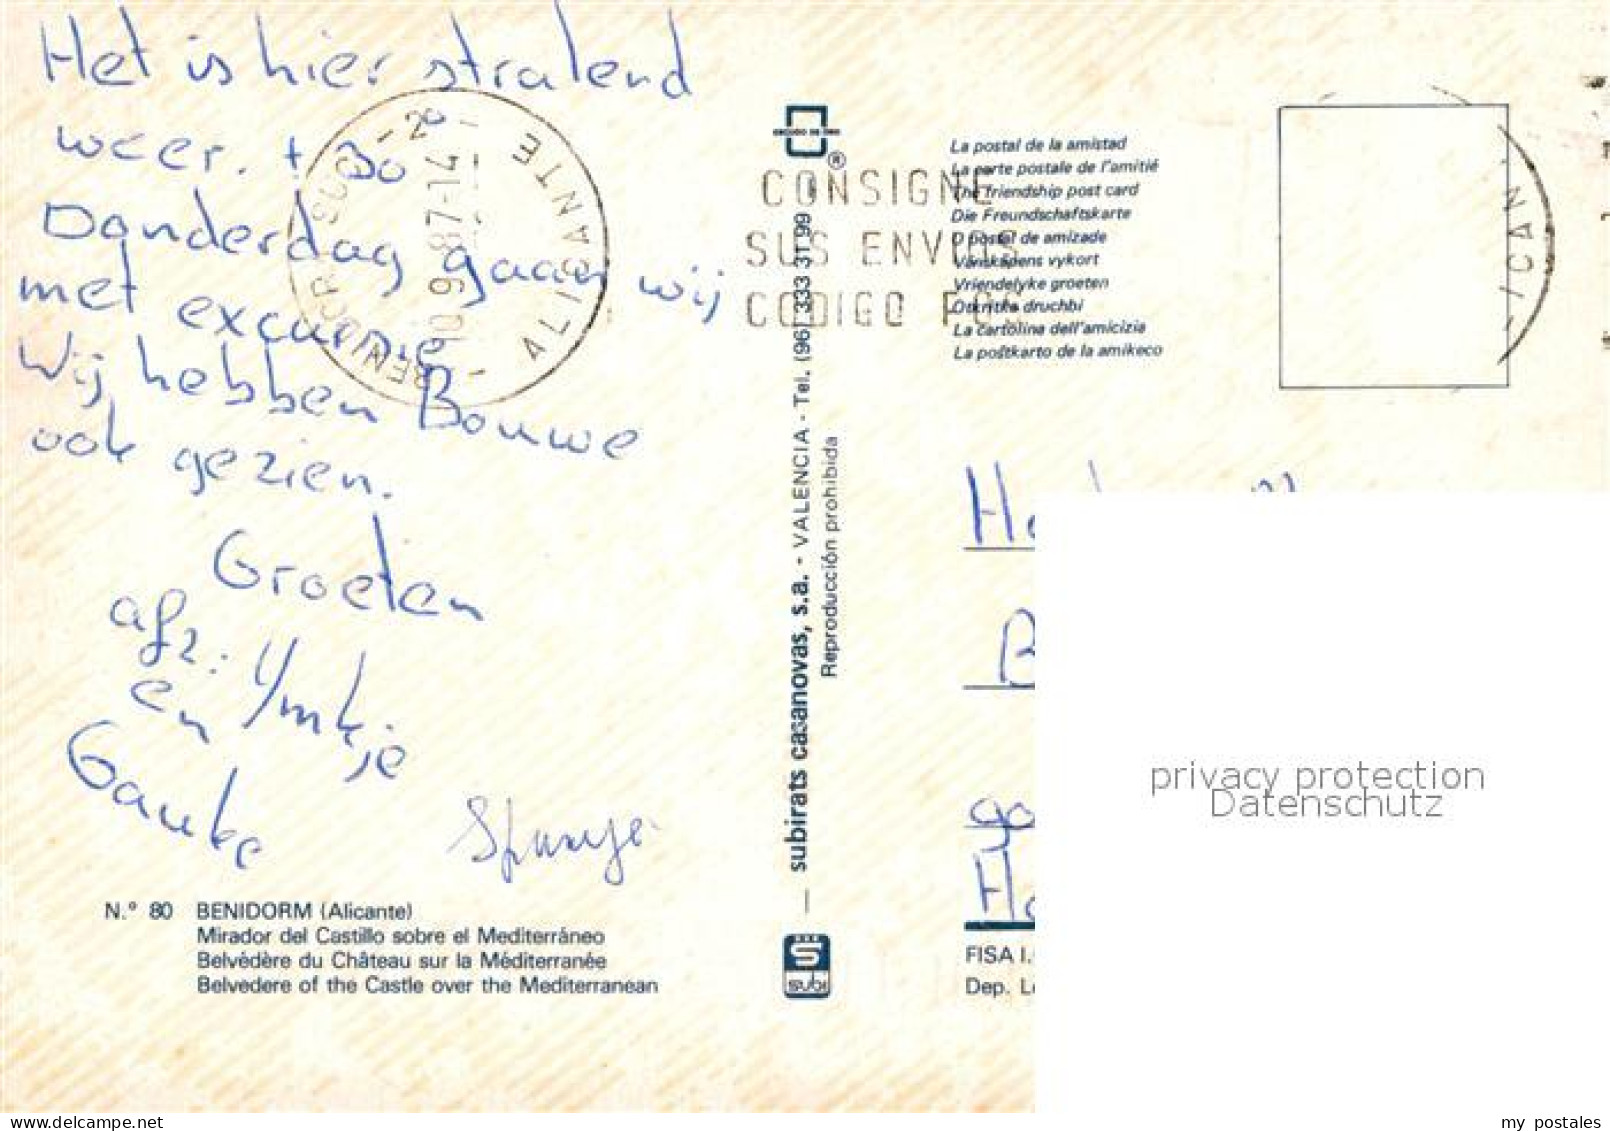 Het is hier stralend
weer. + 30°
Donderdag gaan wij
met excursie
Wij hebben Bouwe
ook gezien.
Groeten
afz: Ymkje
en
Gauke
Spanje
N.º 80 BENIDORM (Alicante)
Mirador del Castillo sobre el Mediterráneo
Belvédère du Château sur la Méditerranée
Belvedere of the Castle over the Mediterranean
BENIDORM SUC - 2 -
ALICANTE
10 9 87-14
subirats casanovas, s.a. - VALENCIA - Tel. (96) 333 31 99
Reproducción prohibida
subi
ESCUDO DE ORO
®
CONSIGNE
SUS ENVIOS
CODIGO POS
La postal de la amistad
La carte postale de l'amitié
The friendship post card
Die Freundschaftskarte
O postal de amizade
Vänskapens vykort
Vriendelyke groeten
Otkritka druchbi
La cartolina dell'amicizia
La poŝtkarto de la amikeco
ICAN
B
FISA I.
Dep. L
privacy protection
Datenschutz
www.ansichtskartenversand.com
my postales